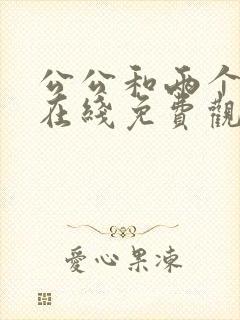 公公和兩个
在綫免費觀
愛心果凍